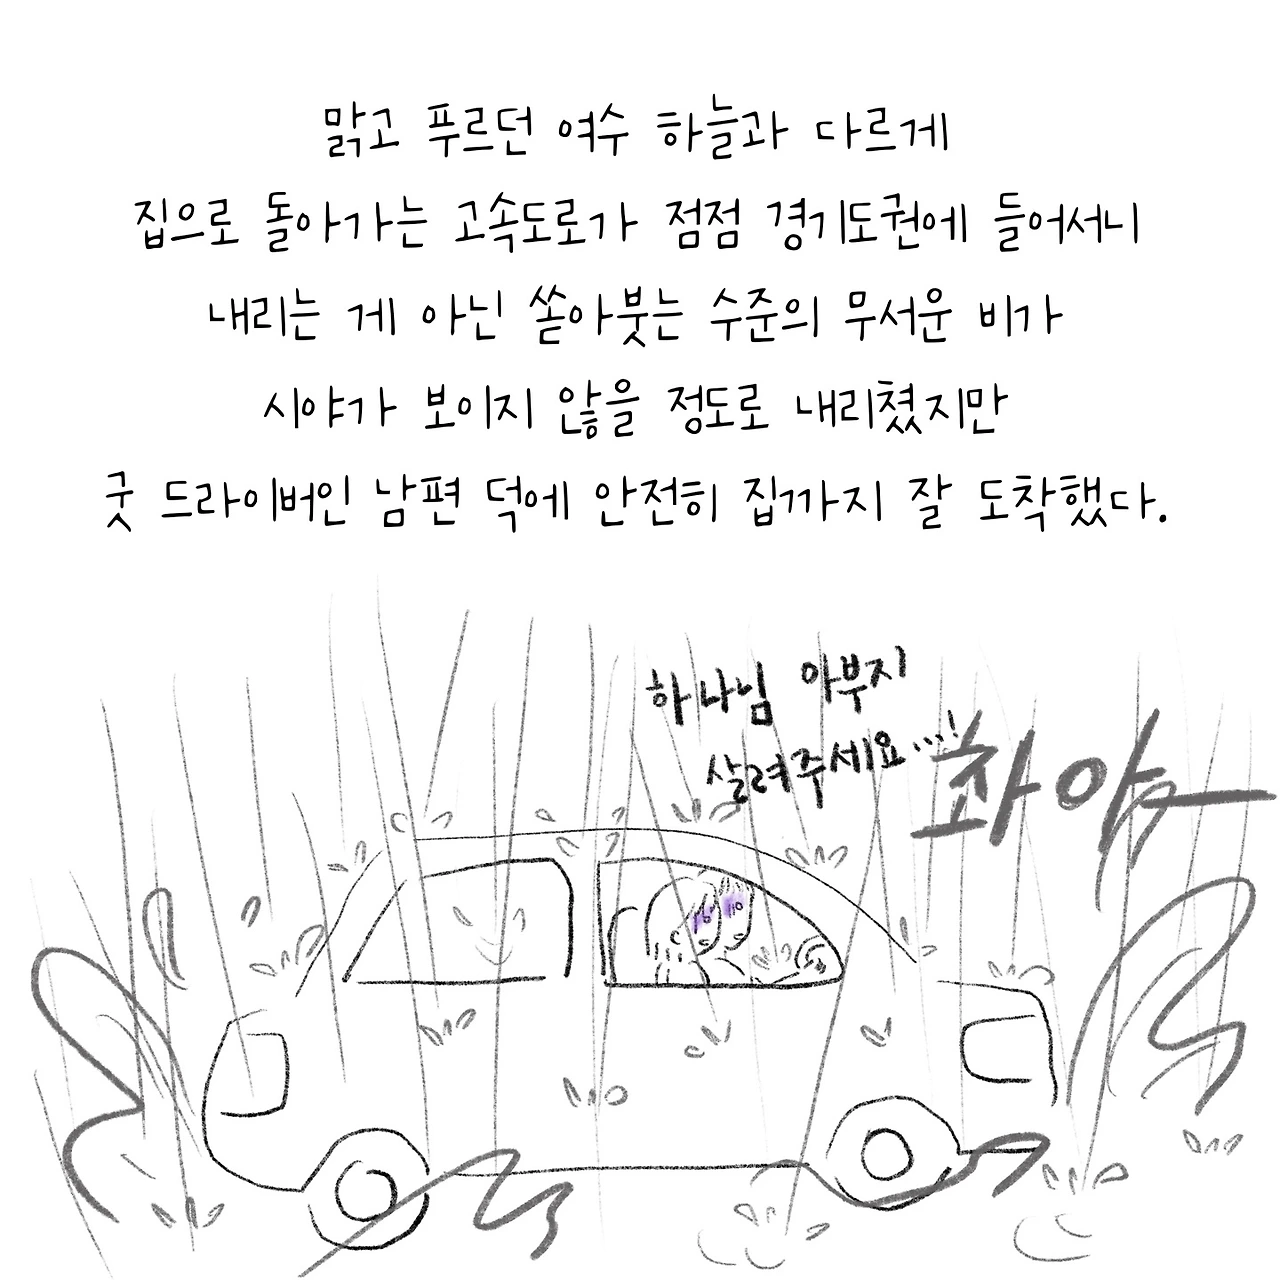 맑고 푸르던 여수 하늘과 다르게
집으로 돌아가는 고속도로가 점점 경기도권에 들어서니
내리는 게 아닌 쏟아붓는 수준의 무서운 비가
시야가 보이지 않을 정도로 내리쳤지만
굿 드라이버인 남편 덕에 안전히 집까지 잘 도착했다.
하나님 아부지
살려주세요...!
촤아ㅡ